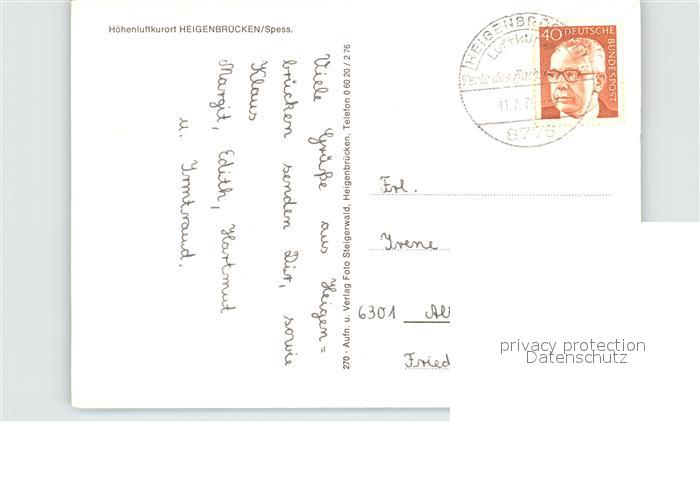 Höhenluftkurort HEIGENBRÜCKEN/Spess.
Viele Grüße aus Heigen=
brücken senden Dir, sowie
Klaus
Margit, Edith, Hartmut
u. Irmtraud.
270 · Aufn. u. Verlag Foto Steigerwald, Heigenbrücken, Telefon 0 60 20 / 2 76
HEIGENBRÜ
Luftku
Perle des Hoch
11.7.75
8776
40 DEUTSCHE
BUNDESPOST
Frl.
Irene
6301
Fried
privacy protection
Datenschutz